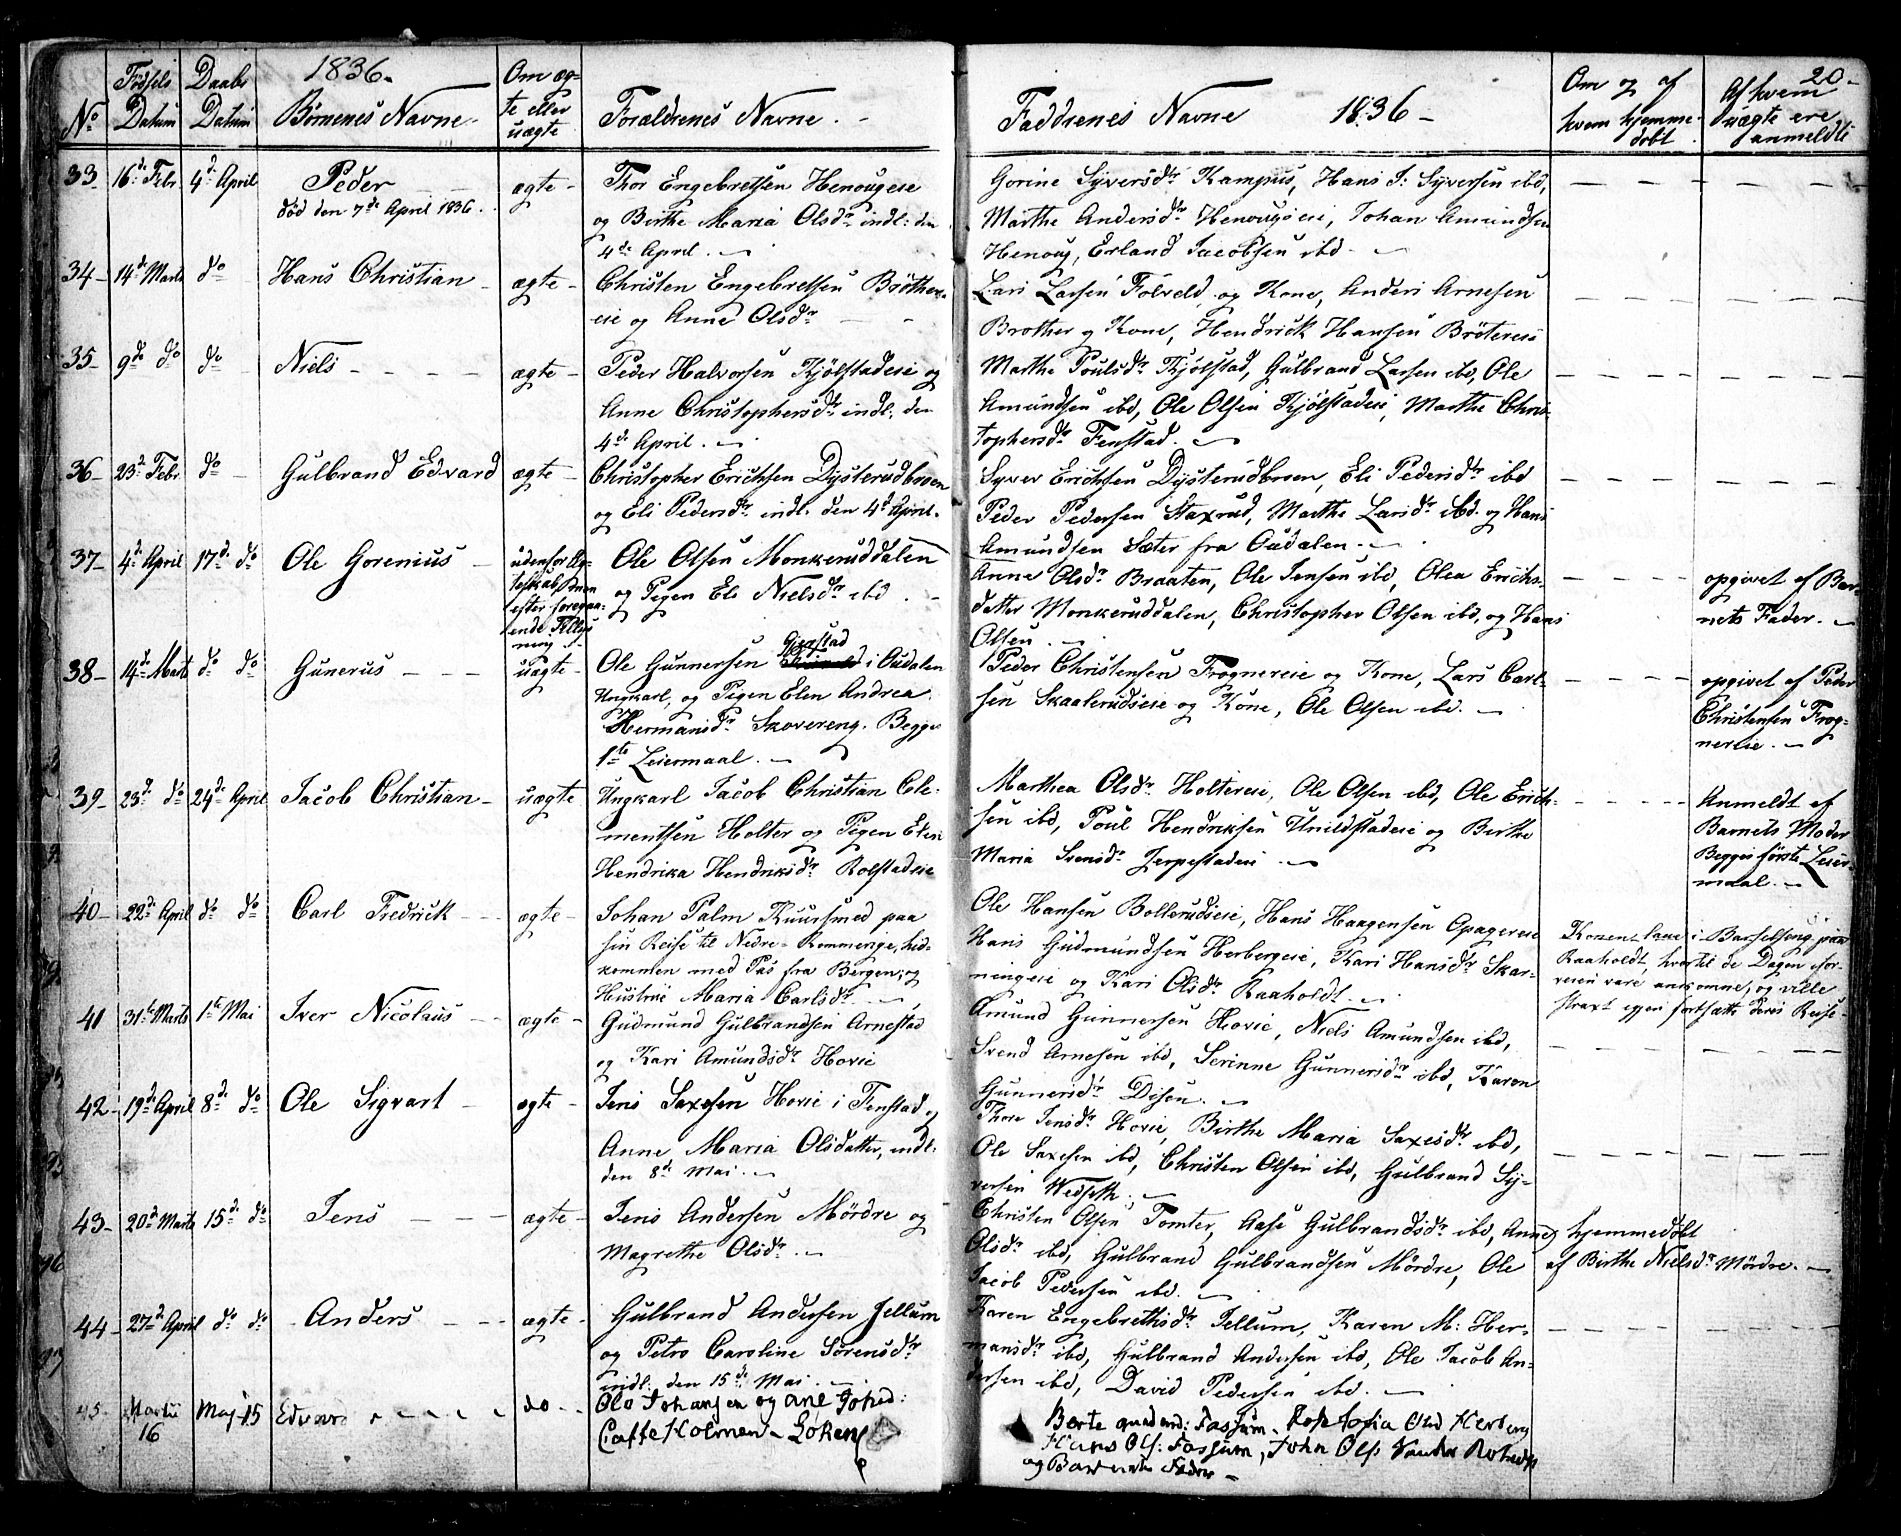 1836.
20-
No
Fødsels Datum
Daabs Datum
Børnenes Navne.
Om ægte eller uægte
Forældrenes Navne.
Faddrenes Navne 1836 -
Om og af hvem hjemmedøbt
Af hvem uægte ere anmeldte
33 16de Febr 4de April Peder ægte
død den 7de April 1836.
Thor Engebretsen Henougeie
og Birthe Maria Olsdr indl: den
4de April.
Gorine Syversdr Kampus, Hans J: Syversen ibd,
Marthe Andersdr Henougeie, Johan Amundsen
Henoug, Erland Jacobsen ibd.
34 14de Marts do Hans Christian ægte
Christen Engebretsen Brøther-
eie og Anne Olsdr
Lars Larsen Folveld og Kone, Anders Arnesen
Brother og Kone, Hendrick Hansen Brøtereie
35 9de do do Niels ægte
Peder Halvorsen Kjølstadeie og
Anne Christophersdr indl. den
4de April.
Marthe Poulsdr Kjølstad, Gulbrand Larsen ibd, Ole
Amundsen ibd, Ole Olsen Kjølstadeie, Marthe Chris-
tophersdr Fenstad.
36 23de Febr do Gulbrand Edvard ægte
Christopher Erichsen Dysterudboen
og Eli Pedersdr indl. den 4de April.
Syver Erichsen Dysterudboen, Eli Pedersdr ibd
Peder Pedersen Staxrud, Marthe Larsdr ibd og Hans
Amundsen Sæter fra Oudalen.
37 4de April 17de do Ole Gorenius
udenfor Æg-
teskab, Men
efter foregaa-
ende Trolov-
ning
Ole Olsen Monkeruddalen
og Pigen Eli Nielsdr ibd.
Anne Olsdr Braaten, Ole Jensen ibd, Olea Erichs-
datter Monkeruddalen, Christopher Olsen ibd, og Hans
Olsen.
opgivet af Bar-
nets Fader.
38 14de Marts do do Gunerus uægte
Ole Gunnersen Gjerstad i Oudalen
Ungkarl, og Pigen Elen Andrea
Hermansdr Skovereng. Begges
1te Leiermaal.
Peder Christensen Frognereie og Kone, Lars Carl-
sen Skaalerudseie og Kone, Ole Olsen ibd.
opgivet af Peder
Christensen Frog-
nereie.
39 23de do 24de April Jacob Christian uægte
Ungkarl Jacob Christian Cle-
mentsen Holter og Pigen Elen
Hendrika Hendriksdr Rolstadeie
Marthea Olsdr Holtereie, Ole Olsen ibd, Ole Erich-
sen ibd, Poul Hendriksen Unildstadeie og Birthe
Maria Svensdr Jerpestadeie
Anmeldt af
Barnets Moder
Begges første Leier-
maal.
40 22de April do do Carl Fredrick ægte
Johan Palm Kuursmed paa
sin Reise til Nedre-Rommerige, hid-
kommen med Pas fra Bergen, og
Hustrue Maria Carlsdr
Ole Hansen Bollerudseie, Hans Haagensen Opagereie
Hans Gudmundsen Herbergeie, Kari Hansdr Skar-
ningeie og Kari Olsdr Raaholdt.
Konen laae i Barselseng paa
Raaholdt, hvortil de Dagen for-
veien vare ankomne, og ville
straxt igjen fortsætte deres Reise
41 31te Marts 1te Mai Iver Nicolaus ægte
Gudmund Gulbrandsen Arnestad
og Kari Amundsdr Hovie
Amund Gunnersen Hovie, Niels Amundsen ibd,
Svend Arnesen ibd, Serinne Gunnersdr ibd, Karen
Gunnersdr Disen.
42 19de April 8de do Ole Sigvart ægte
Jens Saxesen Hovie i Fenstad og
Anne Maria Olsdatter, indl.
den 8de Mai.
Thore Jensdr Hovie, Birthe Maria Saxesdr ibd,
Ole Saxesen ibd, Christen Olsen ibd, Gulbrand Sy-
versen Wedseth.
43 20de Marts 15de do Jens ægte
Jens Andersen Mördre og
Magrethe Olsdr.
Christen Olsen Tomter, Aase Gulbrandsdr ibd, Anne
Olsdr ibd, Gulbrand Gulbrandsen Mördre, Ole
Jacob Pedersen ibd.
hjemmedøbt
af Birthe Nielsdr Mördre.
44 27de April do do Anders ægte
Gulbrand Andersen Jellum
og Petro Caroline Sørensdr
indl: den 15de Mai.
Karen Engebrethsdr Jellum, Karen M: Her-
mansdr ibd, Gulbrand Andersen ibd, Ole Jacob An-
dersen ibd, David Pedersen ibd.
45. Martii 16 Maj 15 Edvard do
Ole Johansen og Ane Johsd:
Caffe Holmen - Løken
Berte Fassum. Sofia Olsd Herberg
Hans Ols: Fassum, John Ols:
og Barnets Fader